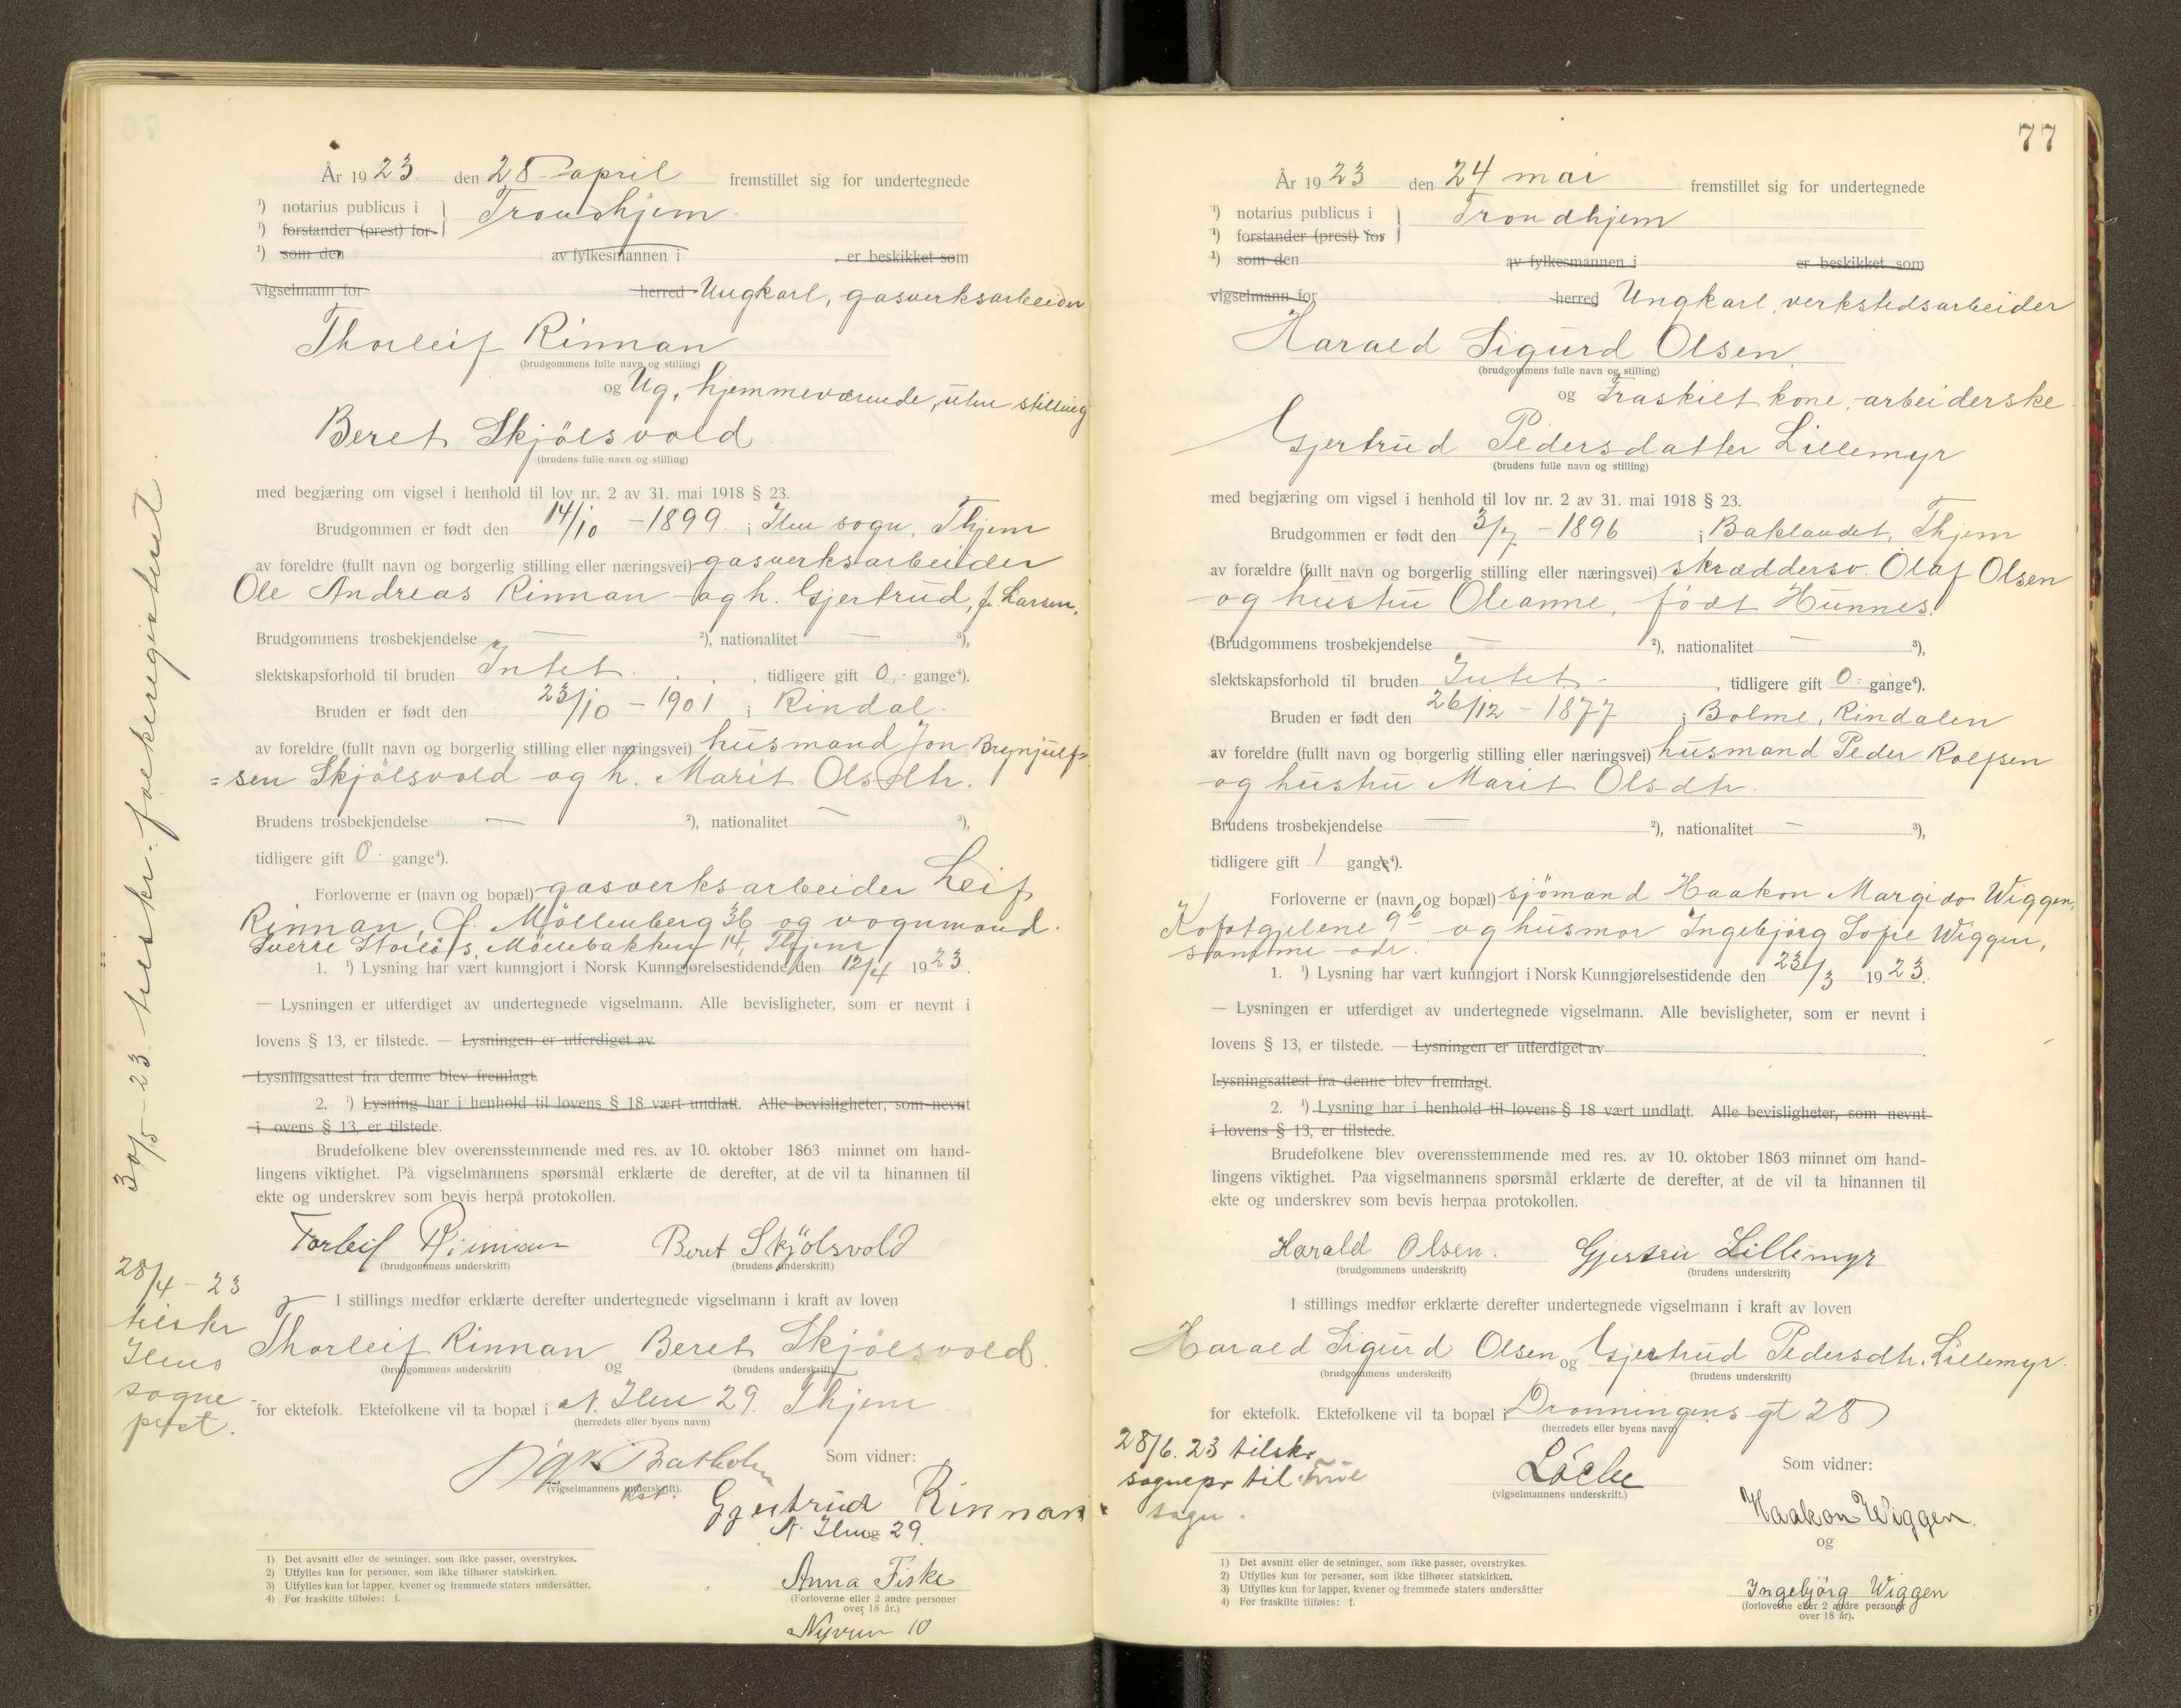 År 1923 den 28 april fremstillet sig for undertegnede
¹) notarius publicus i Trondhjem.
¹) forstander (prest) for
¹) som den av fylkesmannen i er beskikket som
vigselmann for herred Ungkarl, gasverksarbeider
Thorleif Rinnan
(brudgommens fulle navn og stilling)
og Ug, hjemmeværende, uten stilling
Beret Skjölsvold
(brudens fulle navn og stilling)
med begjæring om vigsel i henhold til lov nr. 2 av 31. mai 1918 § 23.
Brudgommen er født den 14/10 - 1899. i Ilen sogn, Thjem
av foreldre (fullt navn og borgerlig stilling eller næringsvei) gasverksarbeider
Ole Andreas Rinnan og h. Gjertrud, f. Larsen,
Brudgommens trosbekjendelse — ²), nationalitet — ³),
slektskapsforhold til bruden Intet. , tidligere gift 0 gange⁴).
Bruden er født den 23/10 - 1901 i Rindal.
av foreldre (fullt navn og borgerlig stilling eller næringsvei) husmand Jon Brynjulf=
=sen Skjölsvold og h. Marit Olsdtr.
Brudens trosbekjendelse — ²), nationalitet — ³),
tidligere gift 0 gange⁴).
Forloverne er (navn og bopæl) gasverksarbeider Leif
Rinnan, Ö. Möllenberg 36 og vognmand.
Sverre Storlös, Möllebakken 14, Thjem
1. ¹) Lysning har vært kunngjort i Norsk Kunngjørelsestidende den 12/4 1923.
— Lysningen er utferdiget av undertegnede vigselmann. Alle bevisligheter, som er nevnt i
lovens § 13, er tilstede. — Lysningen er utferdiget av
Lysningsattest fra denne blev fremlagt.
2. ¹) Lysning har i henhold til lovens § 18 vært undlatt. Alle bevisligheter, som nevnt
i ovens § 13, er tilstede.
Brudefolkene blev overensstemmende med res. av 10. oktober 1863 minnet om hand-
lingens viktighet. På vigselmannens spørsmål erklærte de derefter, at de vil ta hinannen til
ekte og underskrev som bevis herpå protokollen.
Torleif Rinnan Beret Skjölsvold
(brudgommens underskrift) (brudens underskrift)
I stillings medfør erklærte derefter undertegnede vigselmann i kraft av loven
Thorleif Rinnan og Beret Skjölsvold.
(brudgommens underskrift) (brudens underskrift)
for ektefolk. Ektefolkene vil ta bopæl i N. Ilen 29. Thjem.
(herredets eller byens navn)
Som vidner:
(vigselmannens underskrift).
kst.
Gjertrud Rinnan
N. Ilen 29.
og
Anna Fiske
(Forloverne eller 2 andre personer
over 18 år.)
Nyveien 10
1) Det avsnitt eller de setninger, som ikke passer, overstrykes.
2) Utfylles kun for personer, som ikke tilhører statskirken.
3) Utfylles kun for lapper, kvener og fremmede staters undersåtter.
4) For fraskilte tilføies: f.
30/5-23. tilskr. folkeregisteret.
28/4 - 23
tilskr
Ilens
sogne-
prest.
77
År 1923 den 24 mai fremstillet sig for undertegnede
¹) notarius publicus i Trondhjem
¹) forstander (prest) for
¹) som den av fylkesmannen i er beskikket som
vigselmann for herred Ungkarl, verkstedsarbeider
Harald Sigurd Olsen,
(brudgommens fulle navn og stilling)
og Fraskilt kone, arbeiderske
Gjertrud Pedersdatter Lillemyr
(brudens fulle navn og stilling)
med begjæring om vigsel i henhold til lov nr. 2 av 31. mai 1918 § 23.
Brudgommen er født den 3/7 - 1896 i Baklandet, Thjem
av forældre (fullt navn og borgerlig stilling eller næringsvei) skræddersv. Olaf Olsen
og hustru Oleanne, født Hunnes.
(Brudgommens trosbekjendelse — ²), nationalitet — ³),
slektskapsforhold til bruden Intet. , tidligere gift 0 gange⁴).
Bruden er født den 26/12 - 1877 i Bolme, Rindalen
av foreldre (fullt navn og borgerlig stilling eller næringsvei) husmand Peder Rolfsen
og hustru Marit Olsdtr.
Brudens trosbekjendelse — ²), nationalitet — ³),
tidligere gift 1 gange⁴).
Forloverne er (navn og bopæl) sjömand Haakon Margido Wiggen,
Kofotgjelene 9b og husmor Ingebjörg Sofie Wiggen,
samme adr.
1. ¹) Lysning har vært kunngjort i Norsk Kunngjørelsestidende den 23/3 1923.
— Lysningen er utferdiget av undertegnede vigselmann. Alle bevisligheter, som er nevnt i
lovens § 13, er tilstede. — Lysningen er utferdiget av
Lysningsattest fra denne blev fremlagt.
2. ¹) Lysning har i henhold til lovens § 18 vært undlatt. Alle bevisligheter, som nevnt
i lovens § 13, er tilstede.
Brudefolkene blev overensstemmende med res. av 10. oktober 1863 minnet om hand-
lingens viktighet. Paa vigselmannens spørsmål erklærte de derefter, at de vil ta hinannen til
ekte og underskrev som bevis herpaa protokollen.
Harald Olsen. Gjertru Lillemyr
(brudgommens underskrift) (brudens underskrift)
I stillings medfør erklærte derefter undertegnede vigselmann i kraft av loven
Harald Sigurd Olsen og Gjertrud Pedersdtr. Lillemyr.
(brudgommens underskrift) (brudens underskrift)
for ektefolk. Ektefolkene vil ta bopæl i Dronningens gt 28
(herredets eller byens navn)
Som vidner:
(vigselmannens underskrift.)
Haakon Wiggen.
og
Ingebjörg Wiggen
(forloverne eller 2 andre personer
over 18 år).
28/6. 23 tilskr.
sognepr til
sogn.
1) Det avsnitt eller de setninger, som ikke passer, overstrykes.
2) Utfylles kun for personer, som ikke tilhører statskirken.
3) Utfylles kun for lapper, kvener og fremmede staters undersåtter
4) For fraskilte tilføies: f.